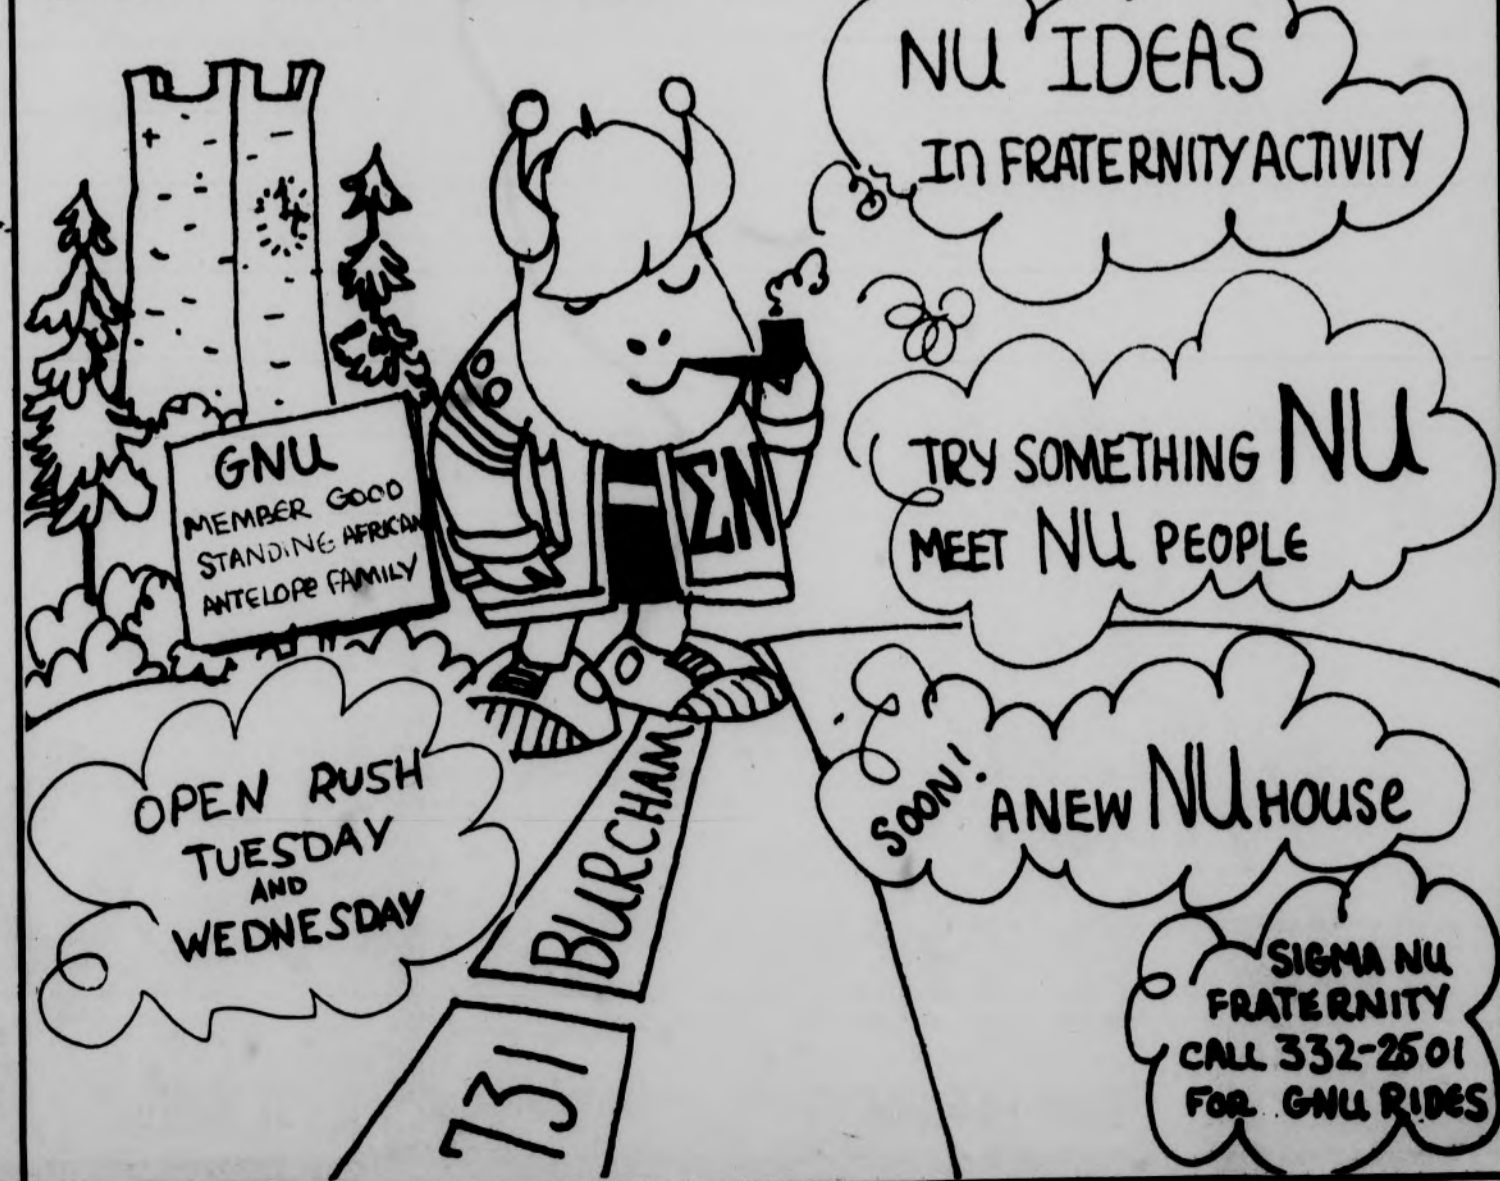 NU IDEAS
In FRATERNITY ACTIVITY
TRY SOMETHING NU
MEET NU PEOPLE
GNU
MEMBER GOOD
STANDING AFRICAN
ANTELOPE FAMILY
ΣN
SOON! A NEW NU HOUSE
OPEN RUSH
TUESDAY
AND
WEDNESDAY
731
BURCHAM
SIGMA NU
FRATERNITY
CALL 332-2501
FOR GNU RIDES